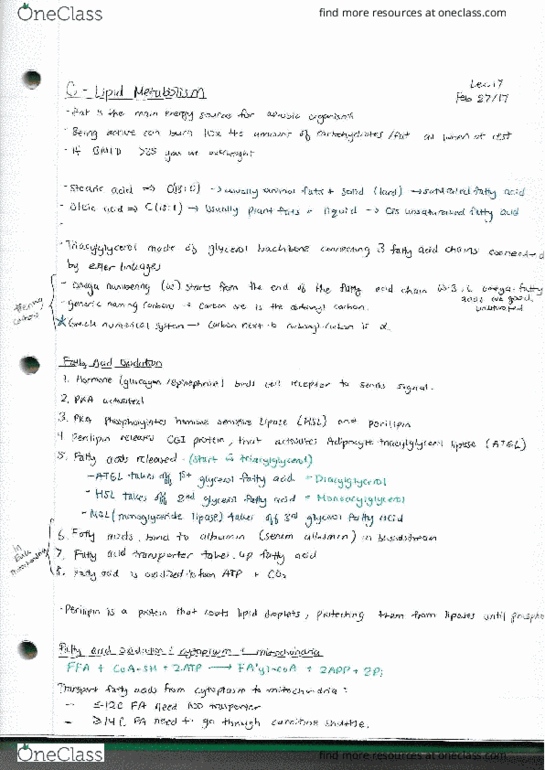 OneClass
find more resources at oneclass.com
Lec 17
Feb 27/17
C - Lipid Metabolism
- Fat is the main energy sources for aerobic organisms
- Being active can burn 10x the amount of carbohydrates/fat as when at rest
- If BMI >25 you are overweight
- Stearic acid ⇒ C(18:0) → usually animal fats + solid (lard) → saturated fatty acid
- Oleic acid ⇒ C(18:1) → Usually plant fats + liquid → Cis unsaturated fatty acid
- Triacylglycerol made of glycerol backbone connecting 3 fatty acid chains connected
by ester linkages
- Omega numbering (ω) starts from the end of the fatty acid chain
- generic naming carbons → Carbon one is the carbonyl carbon.
* Greek numerical system → Carbon next to carbonyl carbon is α.
Fatty Acid Oxidation
1. Hormone (glucagon/epinephrine) binds cell receptor to send signal.
2. PKA activated
3. PKA phosphorylates hormone sensitive lipase (HSL) and perilipin
4. Perilipin releases CGI protein, that activates Adipocyte triacylglycerol lipase (ATGL)
5. Fatty acids released - (start is triacylglycerol)
- ATGL takes off 1st glycerol fatty acid = Diacylglycerol
- HSL takes off 2nd glycerol fatty acid = Monoacylglycerol
- MGL (monoglyceride lipase) takes off 3rd glycerol fatty acid
6. Fatty acids bind to albumin (serum albumin) in bloodstream
7. Fatty acid transporter takes up fatty acid
8. Fatty acid is oxidized to form ATP + CO₂
- Perilipin is a protein that coats lipid droplets, protecting them from lipases until
Fatty acid oxidation: cytoplasm + mitochondria
FFA + CoA-SH + 2ATP → FA'yl-CoA + 2ADP + 2Pi
Transport fatty acids from cytoplasm to mitochondria:
- ≤12C FA need no transporter
- ≥14C FA need to go through carnitine shuttle.
OneClass
find more resources at oneclass.com